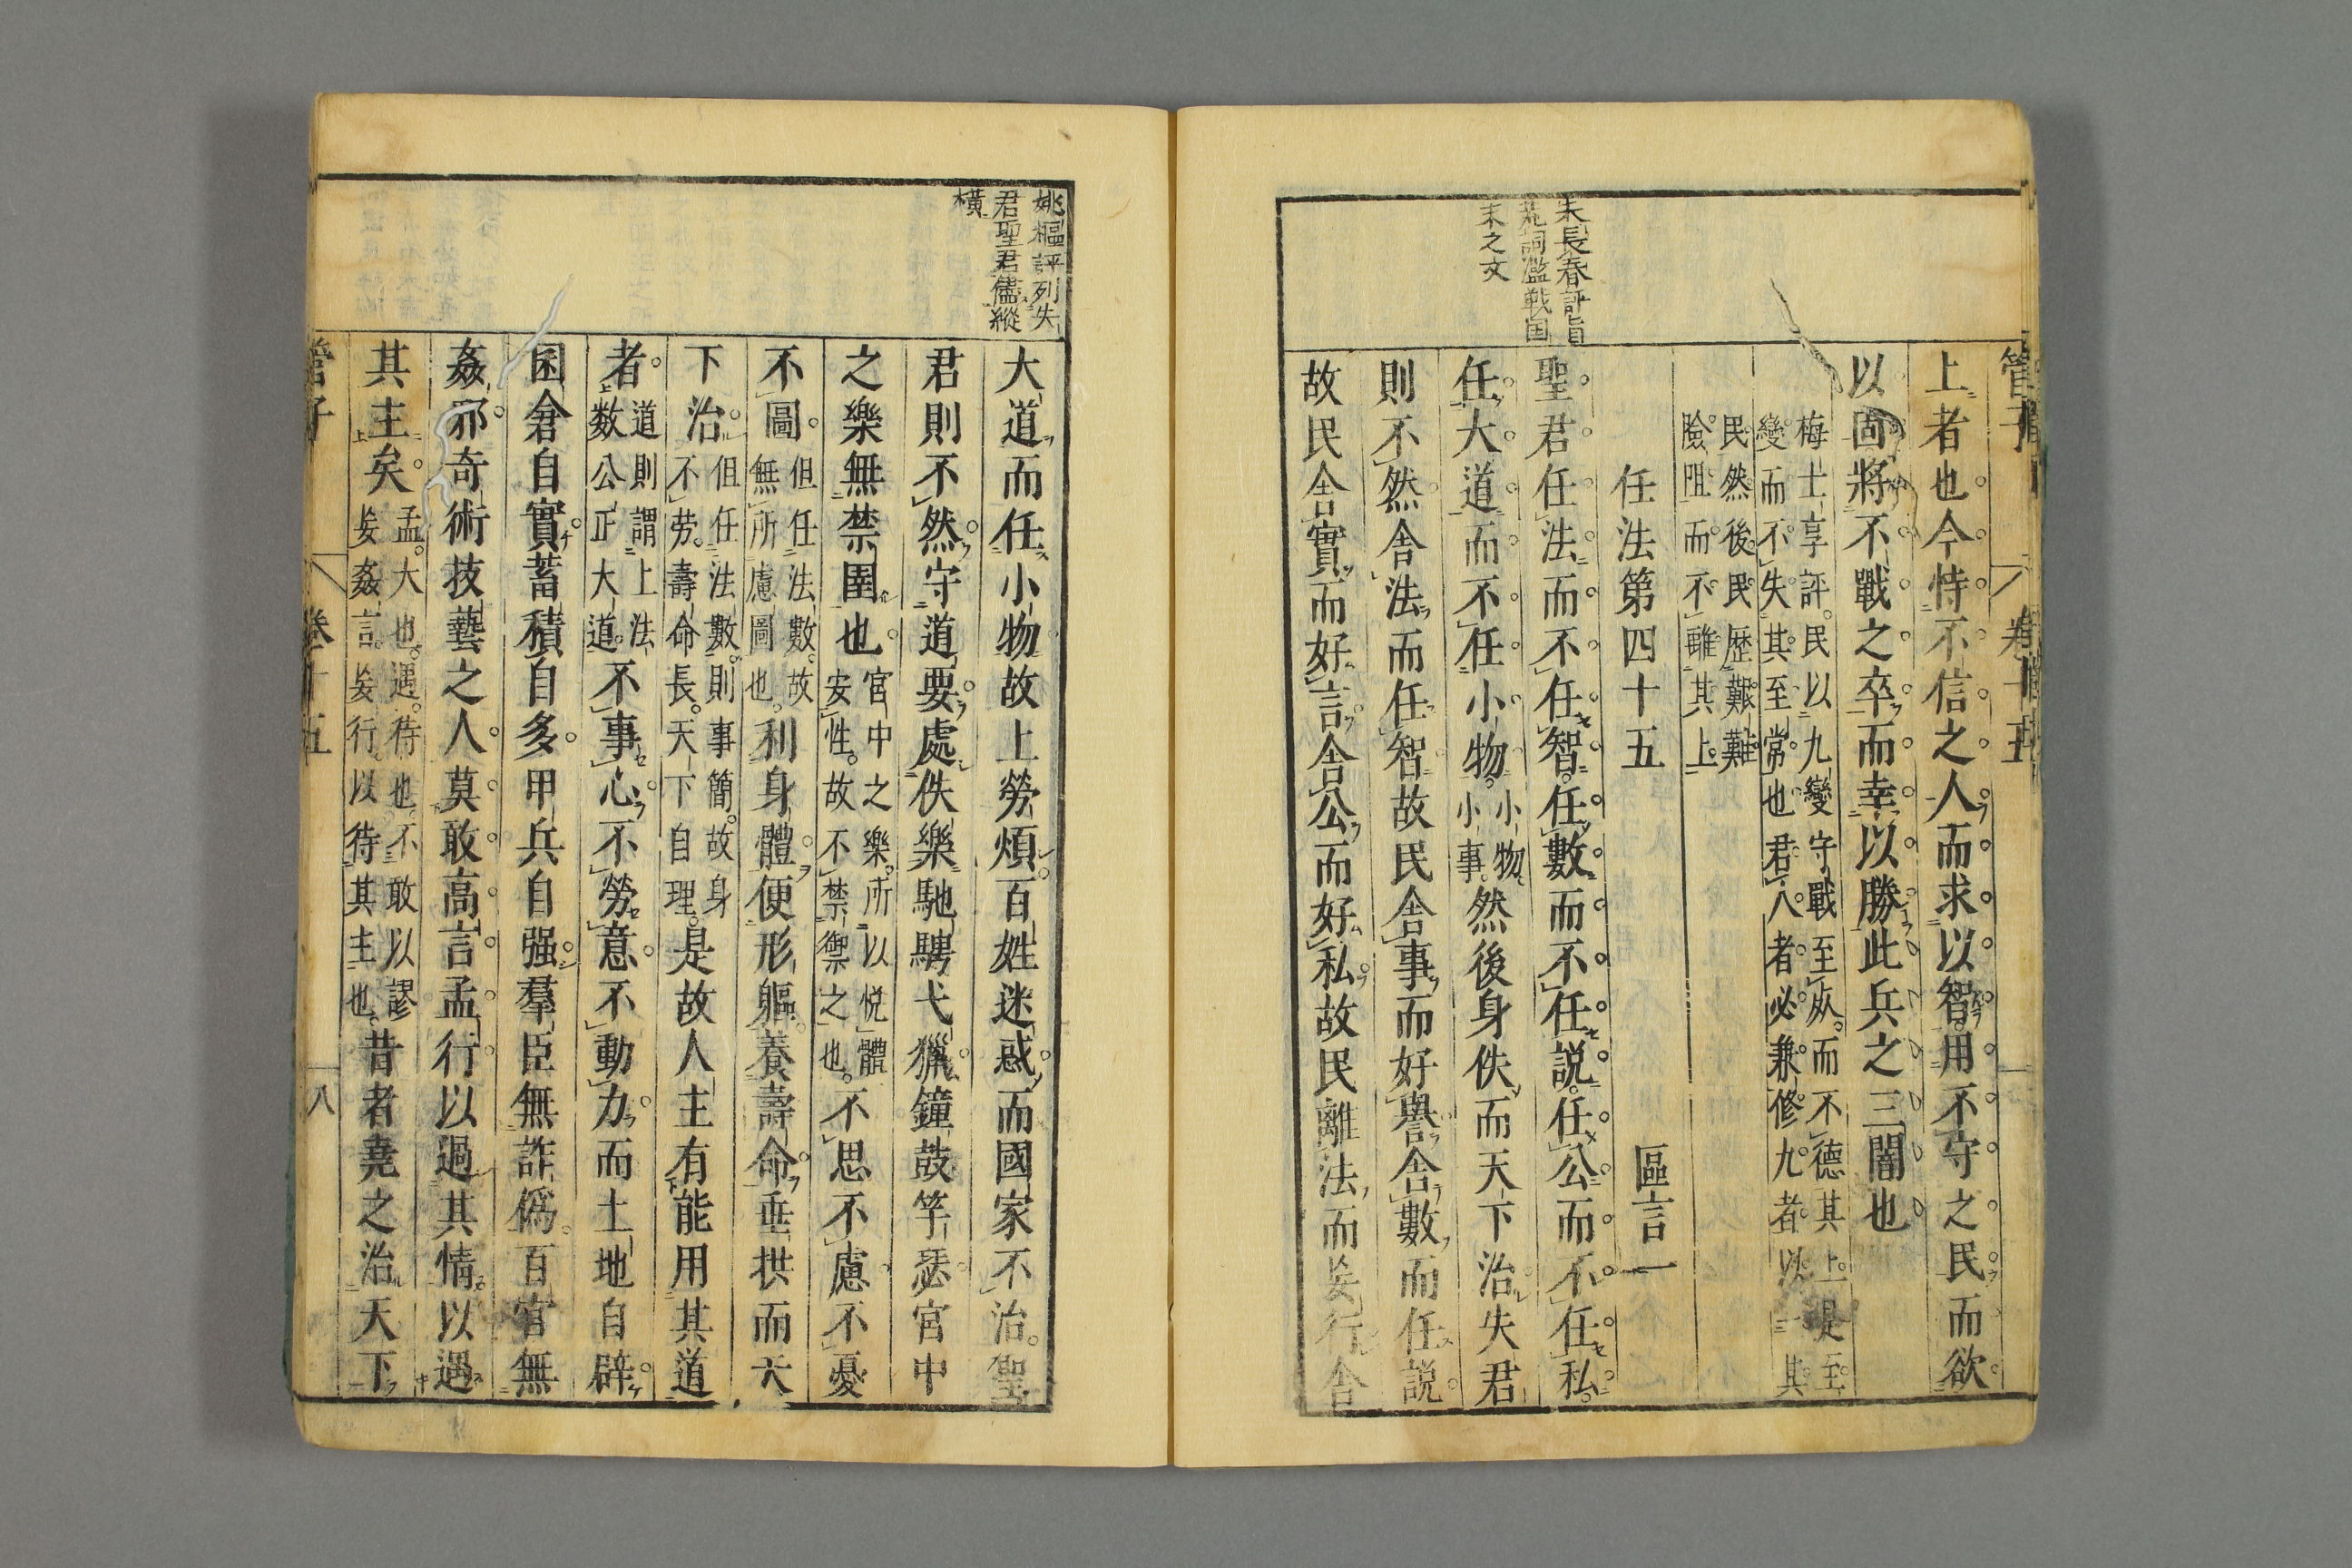 管子
卷十五
上者也今恃不信之人而求以智用不守之民而欲
以固將不戰之卒而幸以勝此兵之三闇也
梅士享評民以九變守戰至死而不德其上是至
變而不失其至常也君人者必兼修九者以一其
民然後民歷艱難
險阻而不離其上
任法第四十五
區言一
朱長春評旨
詞濫戰国
末之文
聖君任法而不任智任數而不任說任公而不任私
任大道而不任小物
小物
小事
然後身佚而天下治失君
則不然舍法而任智故民舍事而好譽舍數而任說
故民舍實而好言舍公而好私故民離法而妄行舍
姚樞評列失
君聖君儘縱
橫
大道而任小物故上勞煩百姓迷惑而國家不治聖
君則不然守道要處佚樂馳騁弋獵鐘鼓竽瑟宮中
之樂無禁圉也
宮中之樂所以悅體
安性故不禁禦之也
不思不慮不憂
不圖
但任法數故
無所慮圖也
利身體便形軀養壽命垂拱而天
下治
但任法數則事簡故身
不劳壽命長天下自理
是故人主有能用其道
者
道則謂上法
数公正大道
不事心不勞意不動力而土地自辟
囷倉自實蓄積自多甲兵自强羣臣無詐僞百官無
姦邪奇術技藝之人莫敢高言孟行以過其情以遇
其主矣
孟大也遇待也不敢以謬
妄姦言妄行以待其主也
昔者堯之治天下
管子
卷十五
八